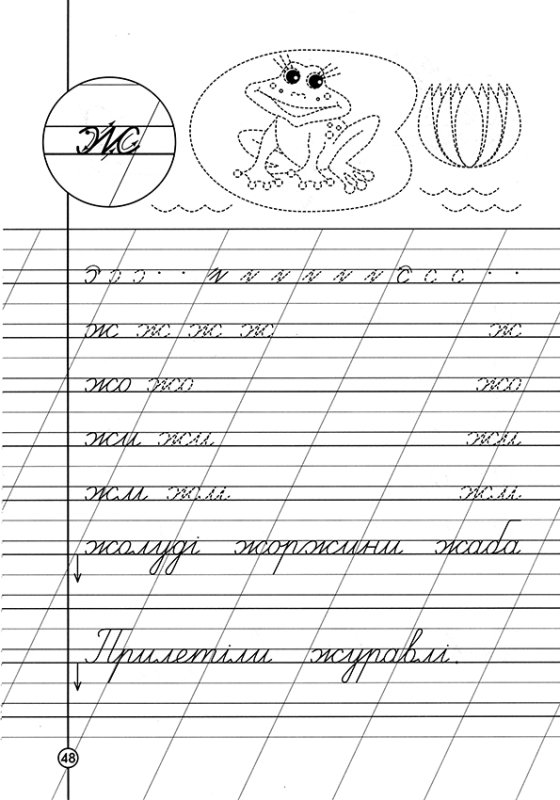 ж
ж ж ж ж ж
жо жо жо
жи жи жи
жм жм жм
жолуді жоржини жаба
Прилетіли журавлі.
48